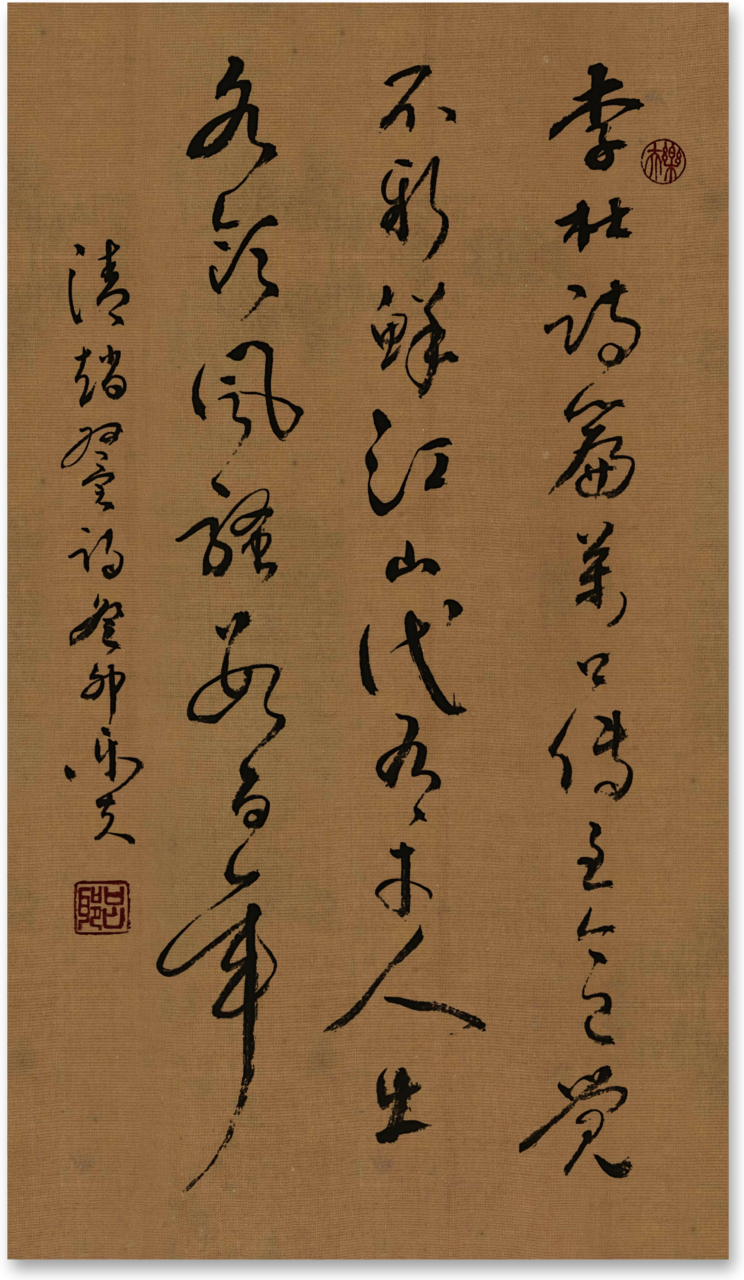 櫟
李杜詩篇萬口傳至今已覺
不新鮮江山代有才人出
各領風騷數百年
清趙翼詩癸卯乐夫